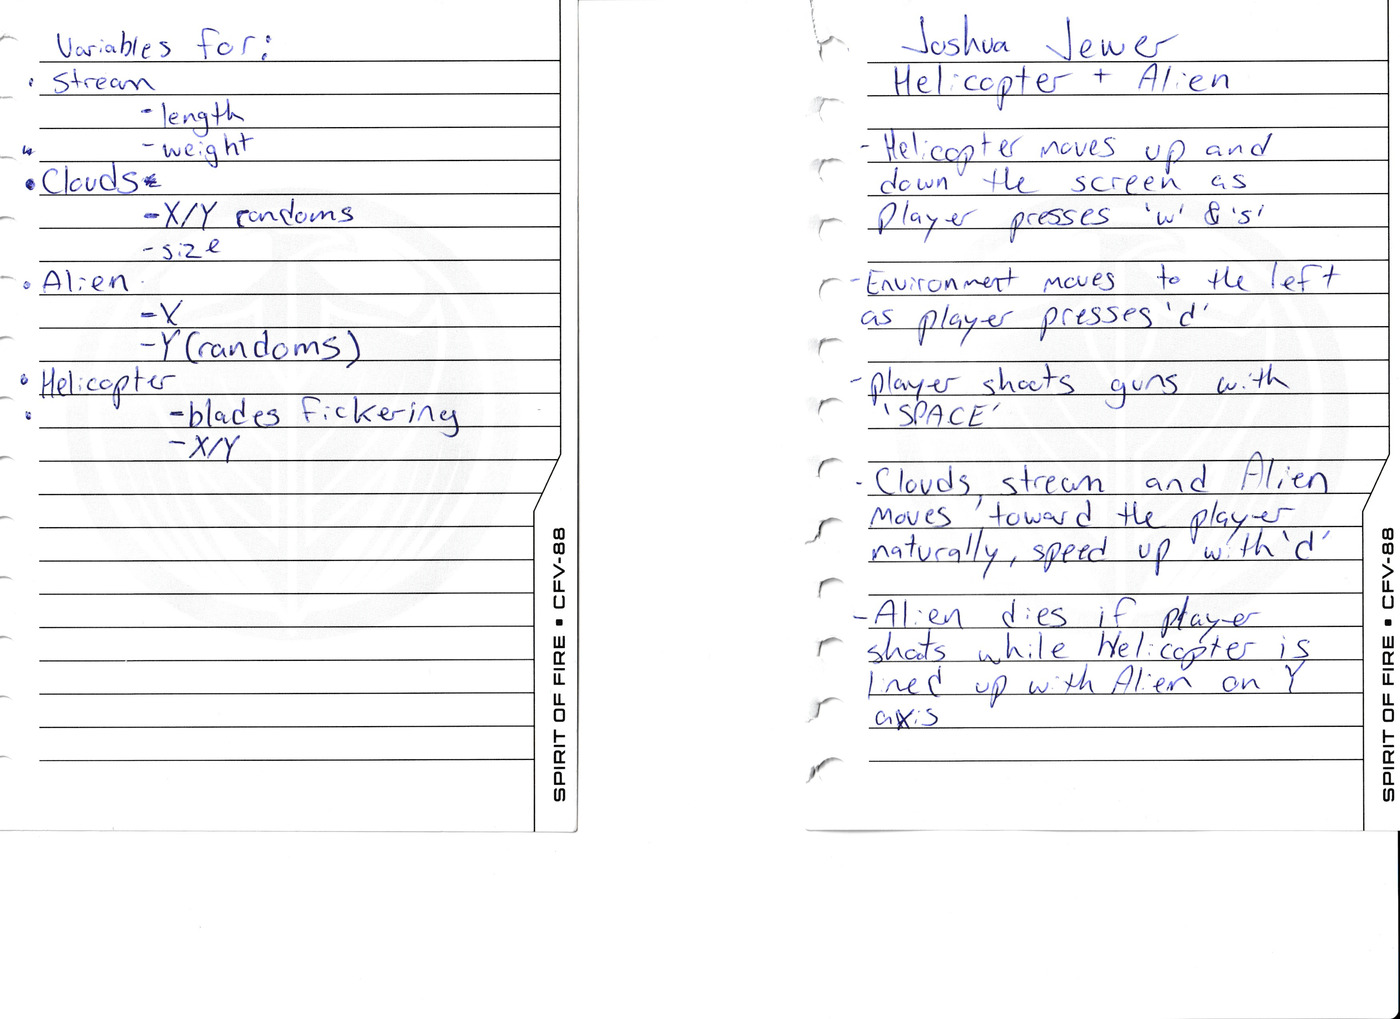 Variables for:
• Stream
- length
- weight
• Clouds
- X/Y randoms
- size
• Alien
- X
- Y (randoms)
• Helicopter
- blades fickering
- X/Y
SPIRIT OF FIRE • CFV-88
Joshua Jewer
Helicopter + Alien
- Helicopter moves up and
down the screen as
Player presses 'w' & 's'
- Environment moves to the left
as player presses 'd'
- player shoots guns with
'SPACE'
- Clouds, stream and Alien
moves toward the player
naturally, speed up with 'd'
- Alien dies if player
shoots while Helicopter is
lined up with Alien on Y
axis
SPIRIT OF FIRE • CFV-88